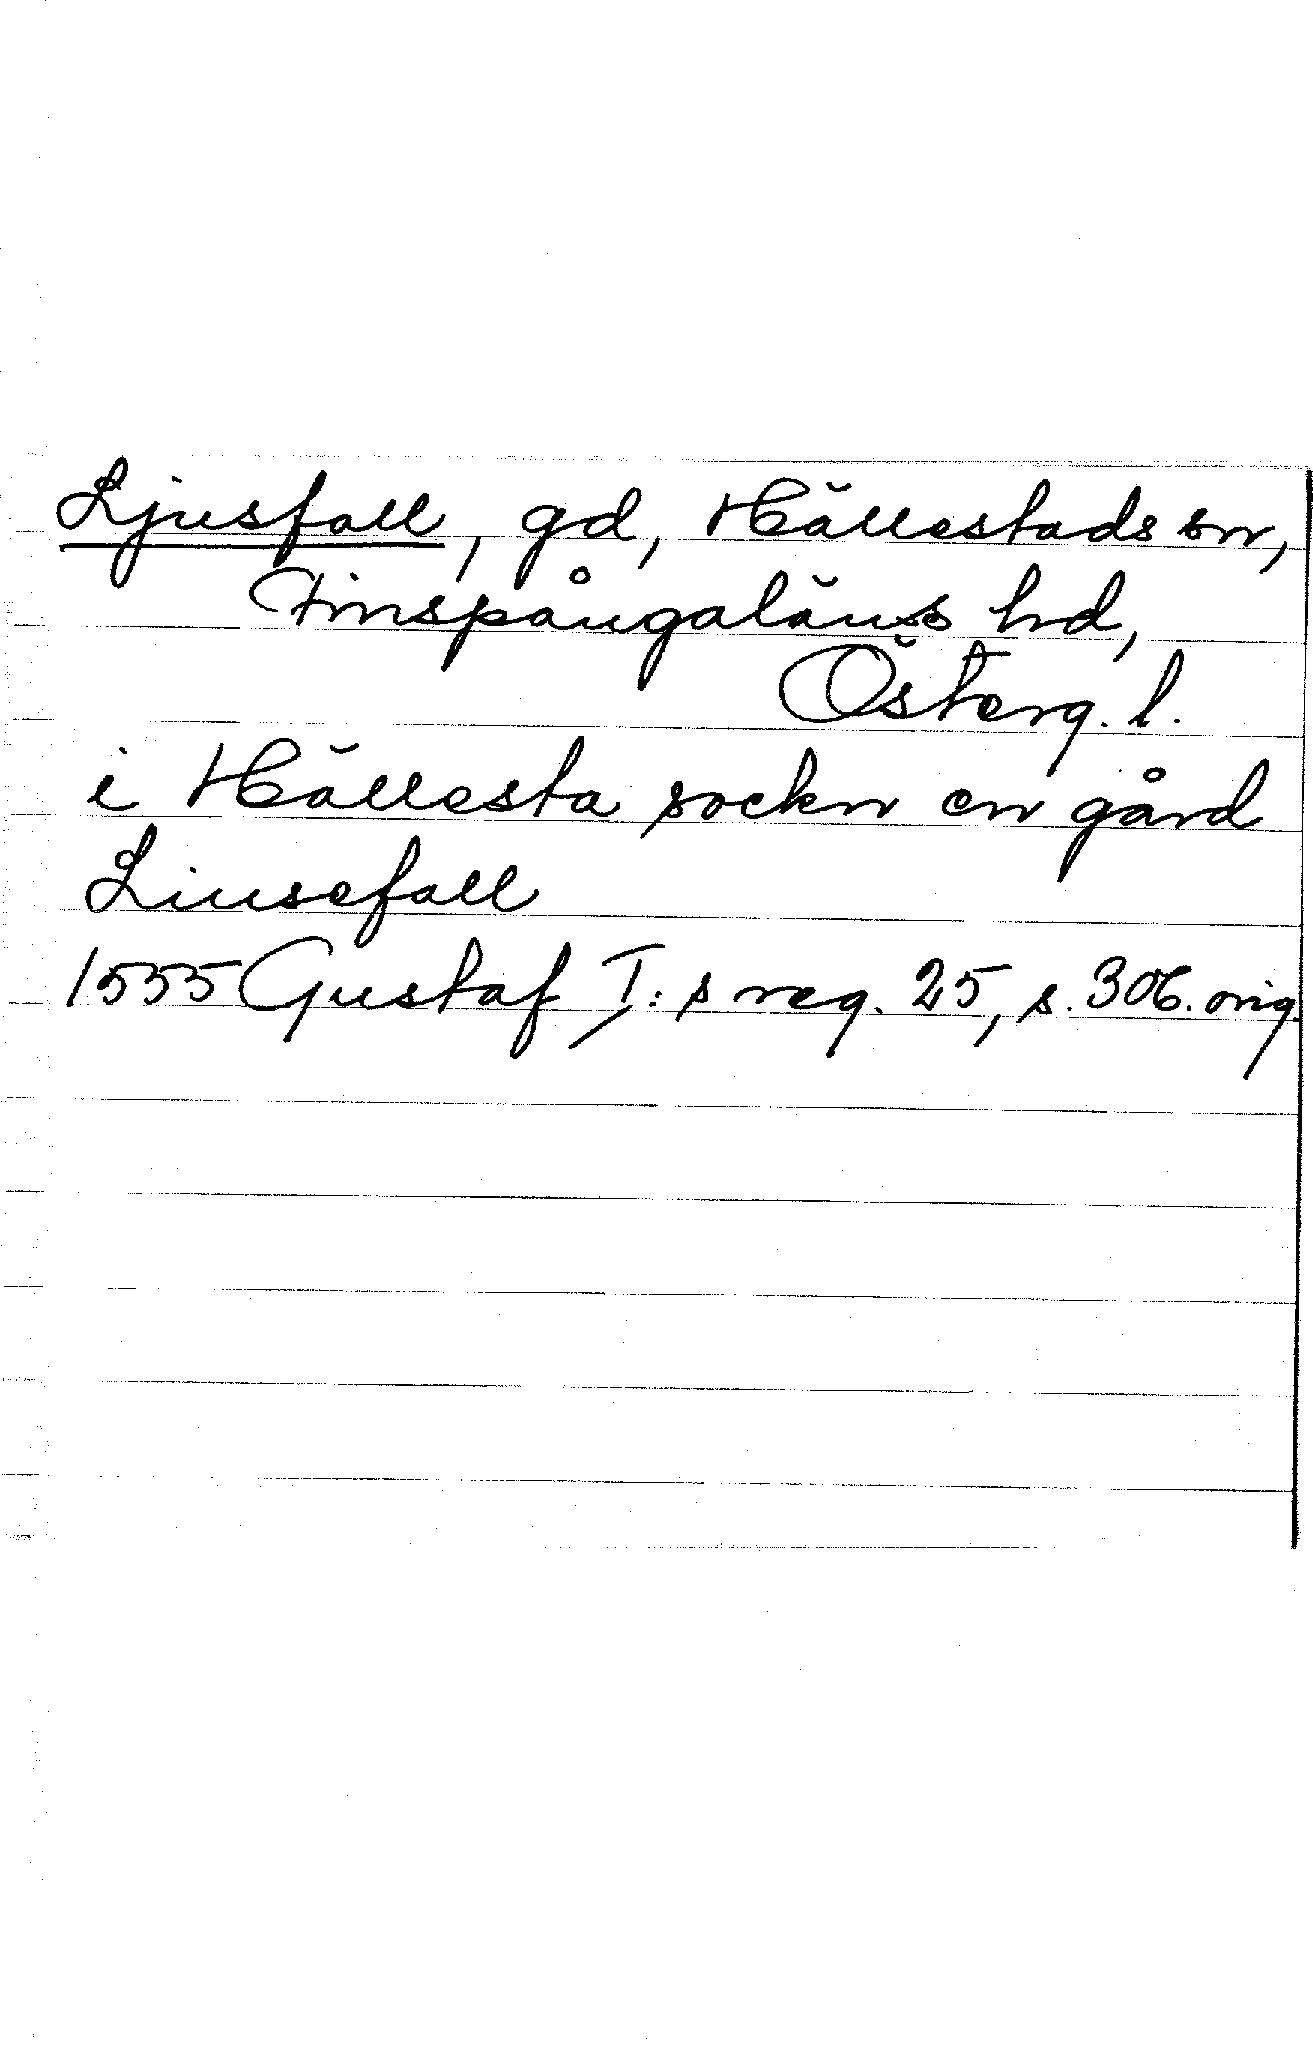 Ljusfall, gd, Hällestads sn,
Finspångaläns hd,
Österg. l.
i Hällesta sockn en gård
Liusefall
1555 Gustaf I:s reg. 25, s. 306. orig.